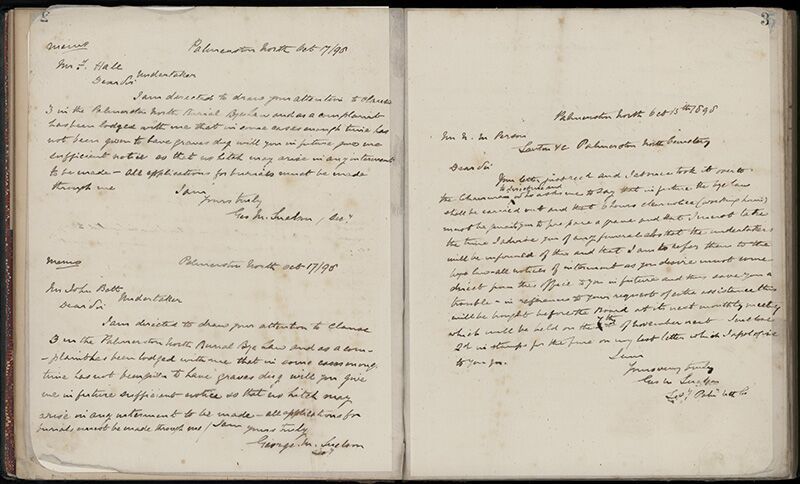 2
Memo
Palmerston North Oct 17/98
Mr J. Hall
Undertaker
Dear Sir
I am directed to draw your attention to Clause
3 in the Palmerston North Burial Bye Law and as a complaint
has been lodged with me that in some cases enough time has
not been given to have graves dug will you in future give me
sufficient notice so that no hitch may arise in any interment
to be made - all applications for burials must be made
through me
I am
Yours truly
Geo M. Snelson / Secy
Memo
Palmerston North Oct 17/98
Mr John Bett
Undertaker
Dear Sir
I am directed to draw your attention to Clause
3 in the Palmerston North Burial Bye Law and as a com-
-plaint has been lodged with me that in some cases enough
time has not been given to have graves dug will you give
me in future sufficient notice so that no hitch may
arise in any interment to be made - all applications for
burials must be made through me / I am yours truly
George M. Snelson
Secy
3
Palmerston North Oct 15th 1898
Mr N. M. Person
Sexton &c Palmerston North Cemetery
Dear Sir
Your letter just recd and I at once took it over to
the Chairman who asks me to say that in future the bye law
shall be carried out and that 6 hours clear notice (working hours)
must be given you to prepare a grave and that I must let
the time I advise you of any funeral also that the undertakers
will be informed of this and that I am to refer them to the
bye laws all notices of interment as you desire must come
direct from this office to you in future and thus save you
trouble - in reference to your request of extra assistance this
will be brought before the Board at its next monthly meeting
which will be held on the 7th of November next - I enclose
2d in stamps for the fine on my last letter which I
to you
I am
Yours very truly
Geo M Snelson
Secy